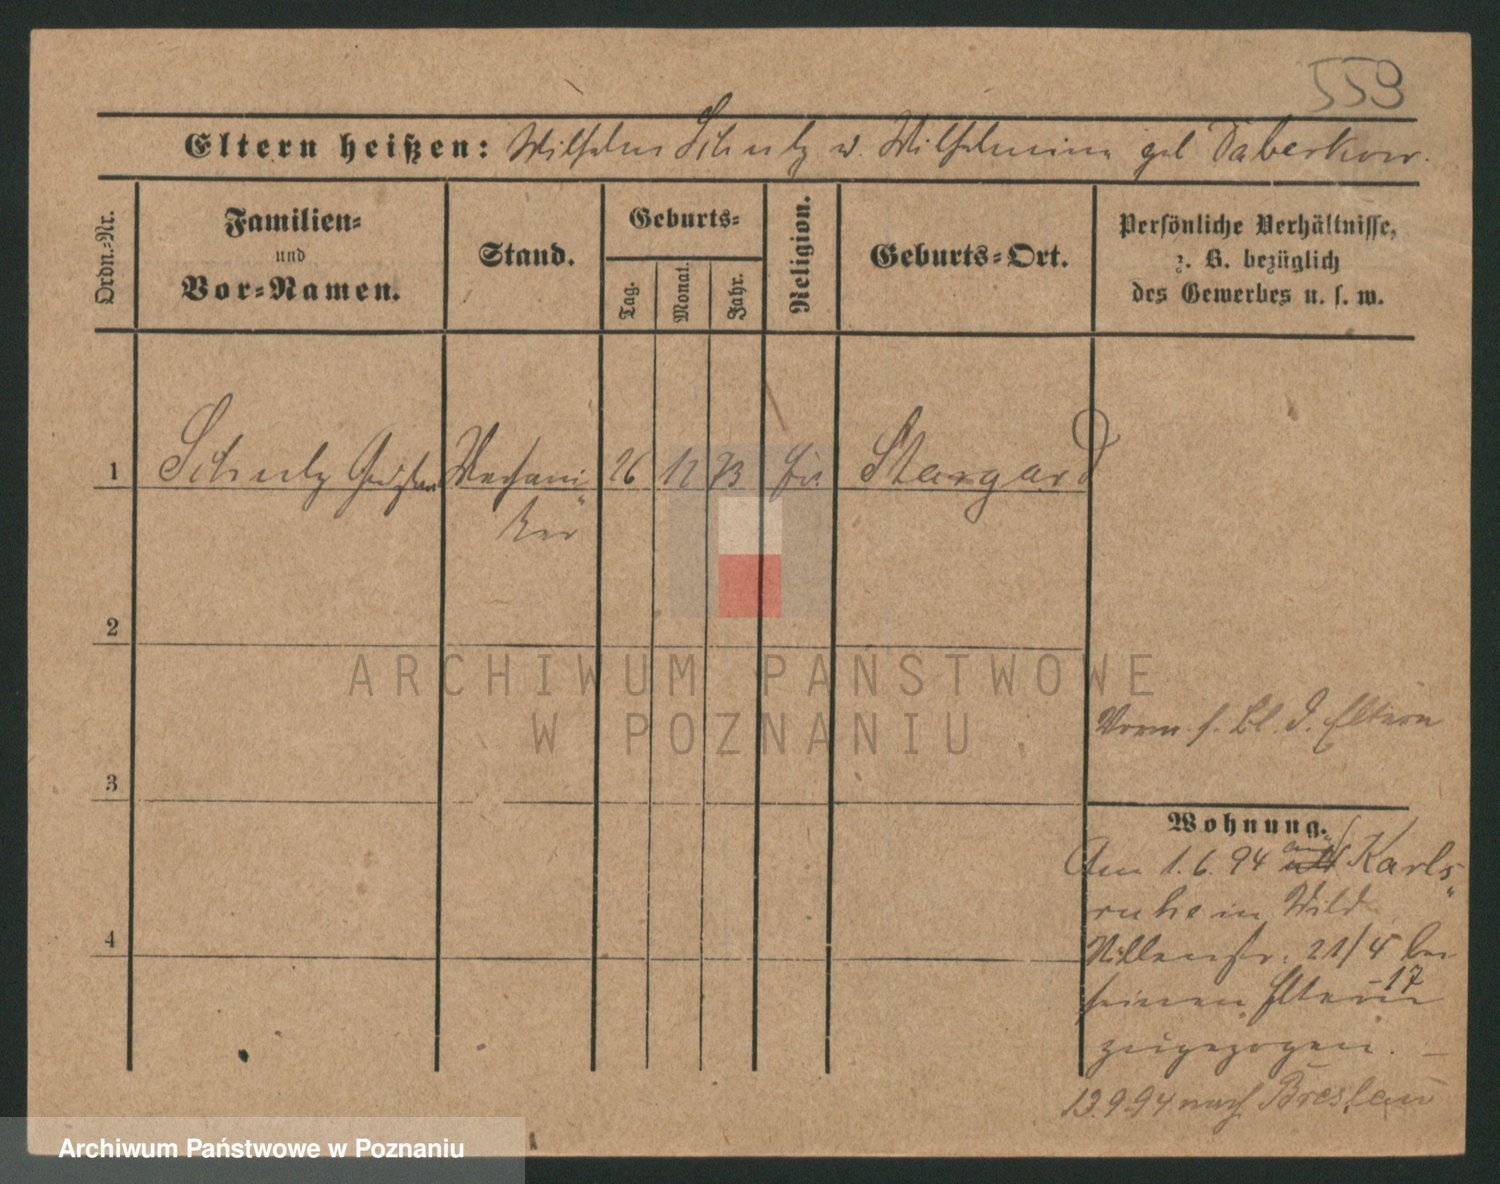 559
Eltern heißen: Wilhelm Schulz u. Wilhelmine geb Daberkow.
Ordn.-Nr.
Familien-
und
Vor-Namen.
Stand.
Geburts-
Tag.
Monat.
Jahr.
Religion.
Geburts-Ort.
Persönliche Verhältnisse,
z. B. bezüglich
des Gewerbes u. s. w.
1
Schulz Mechani-
ker
26 12 73 Stargard
2
3
4
ARCHIWUM PAŃSTWOWE
W POZNANIU
Vorm s. Bl. d. Eltern
Wohnung.
Am 1.6.94 aus Karls-
ruhe in
21/4 bei
17
seinen Eltern
zugezogen. –
13.9.94 nach Breslau
Archiwum Państwowe w Poznaniu